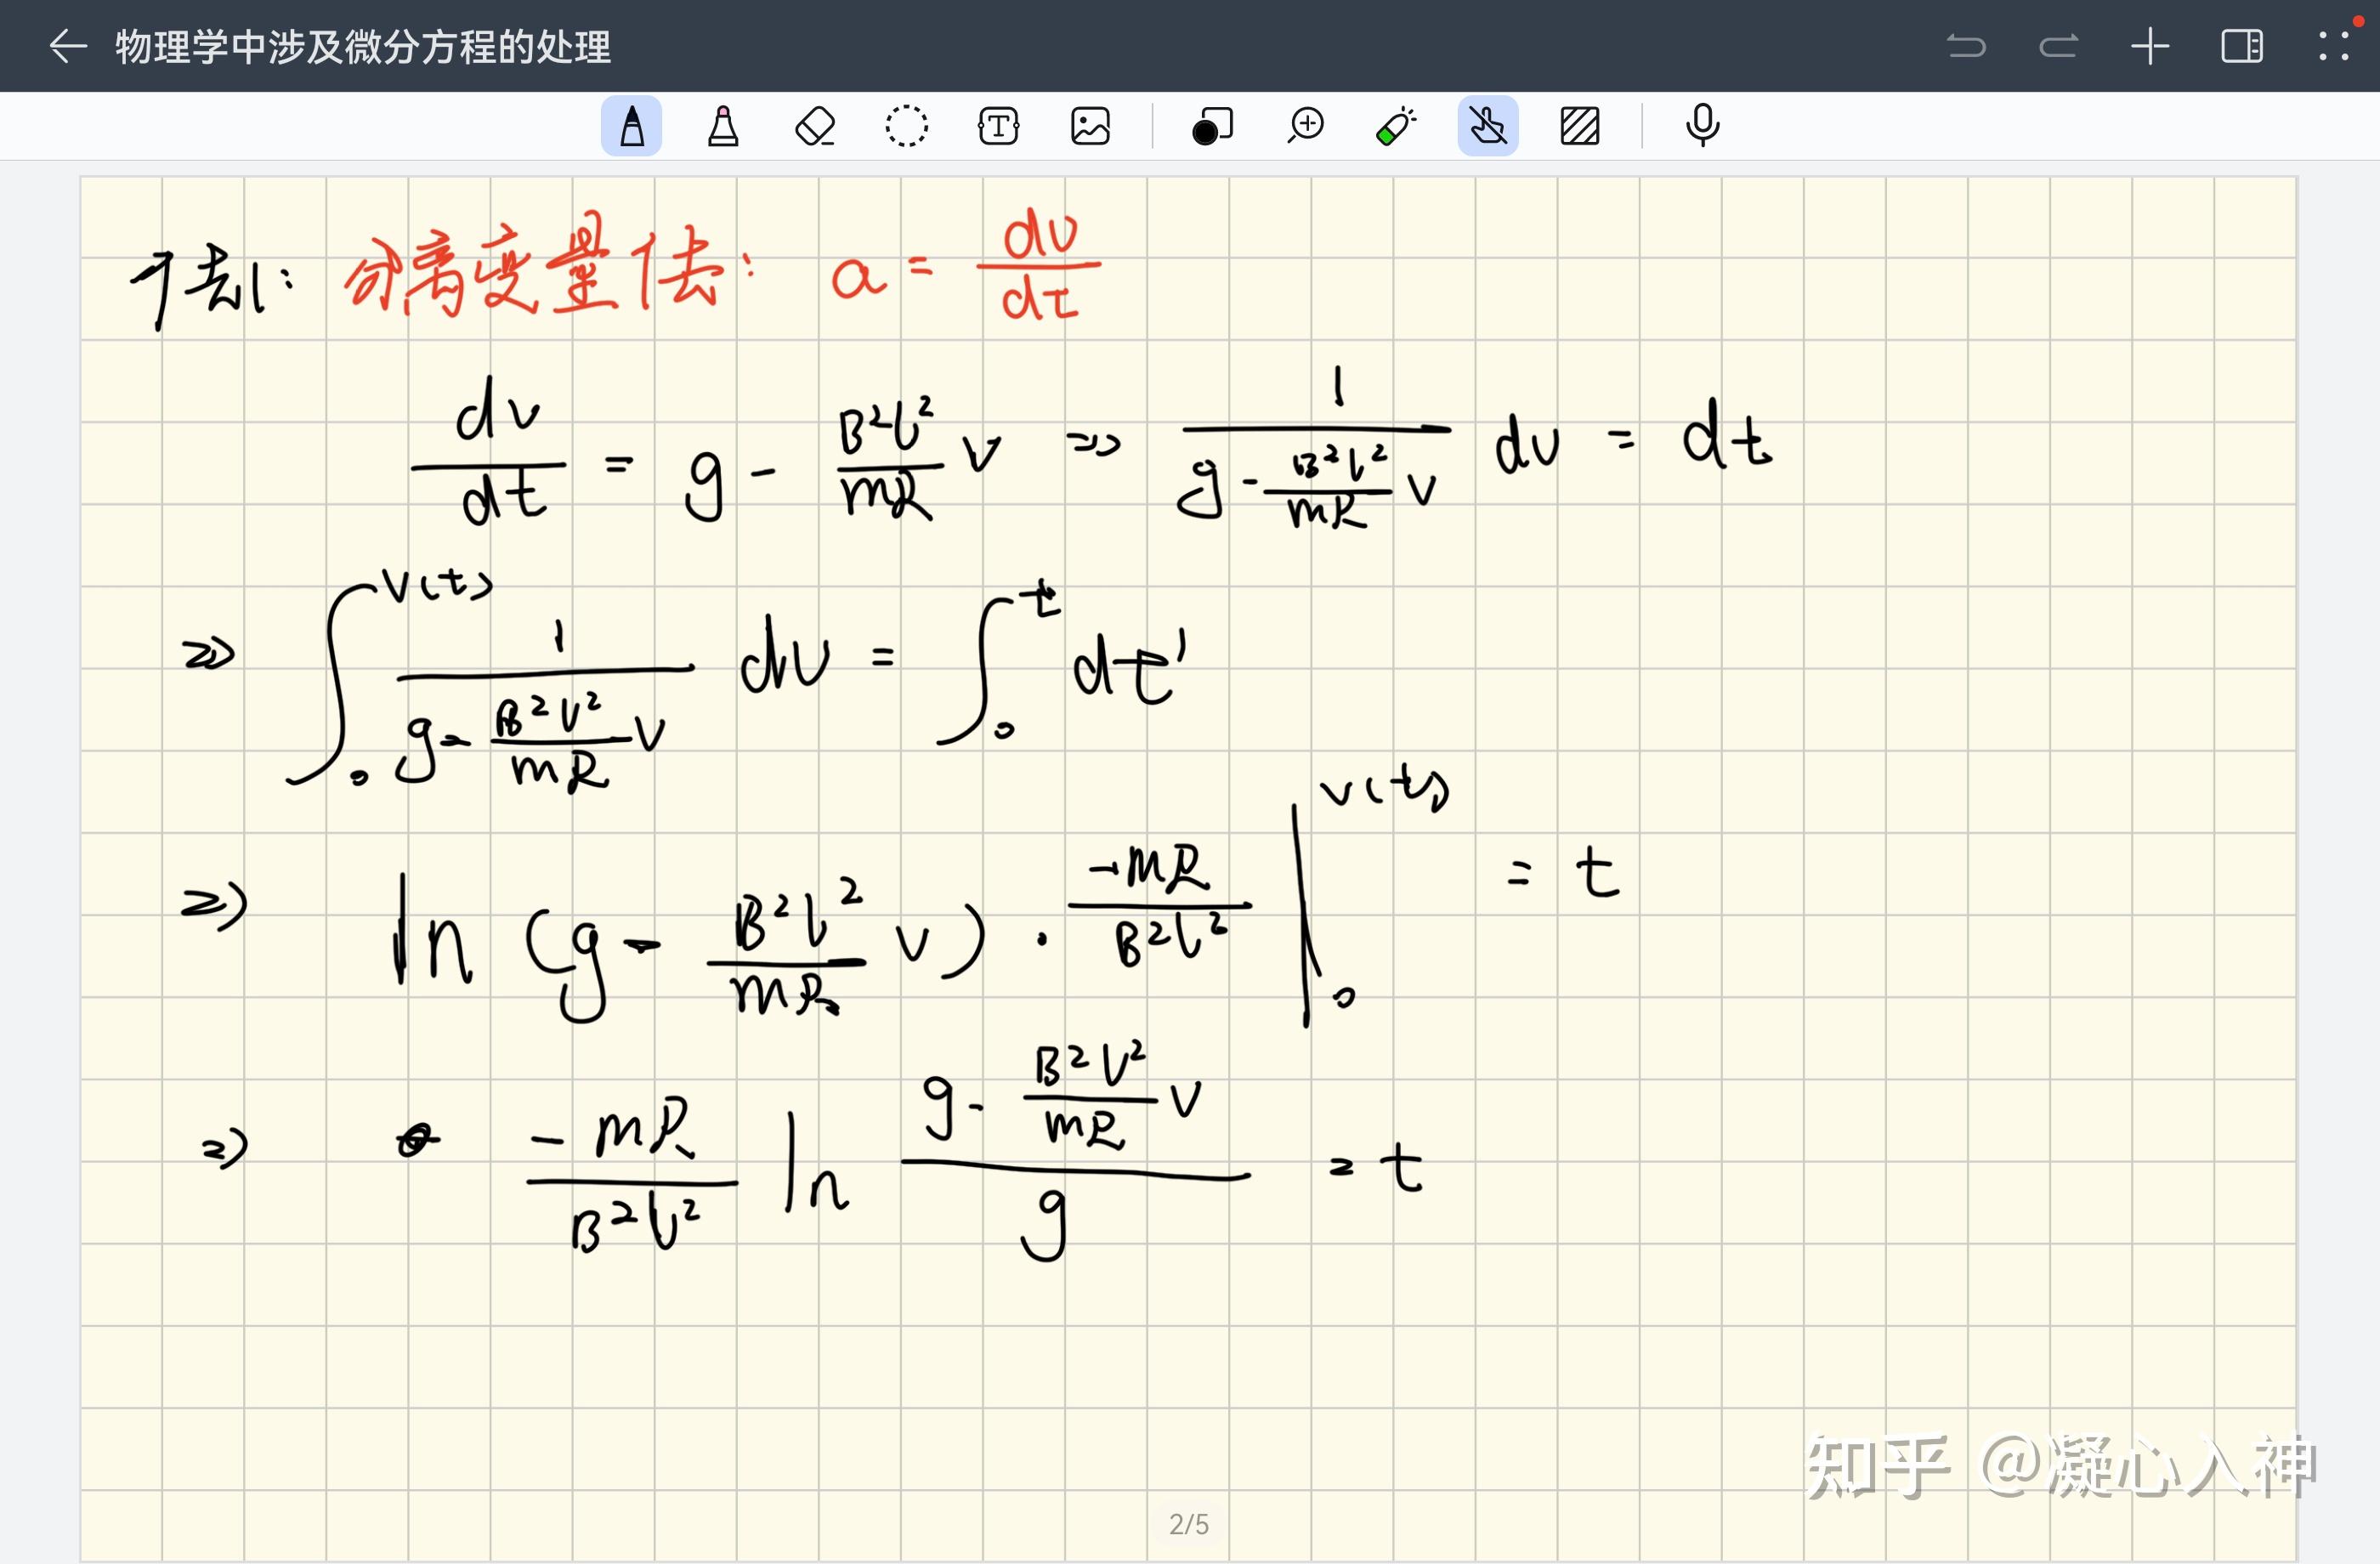 物理学中涉及微分方程的处理
个老1: 分离变量法: a = dv/dt
dv/dt = g - B²l²/mR v => 1/(g - B²l²/mR v) dv = dt
=> ∫₀^v(t) 1/(g - B²l²/mR v) dv = ∫₀^t dt'
=> ln (g - B²l²/mR v) · -mR/B²l² |₀^v(t) = t
=> -mR/B²l² ln (g - B²l²/mR v)/g = t
知乎 @凝心入神
2/5